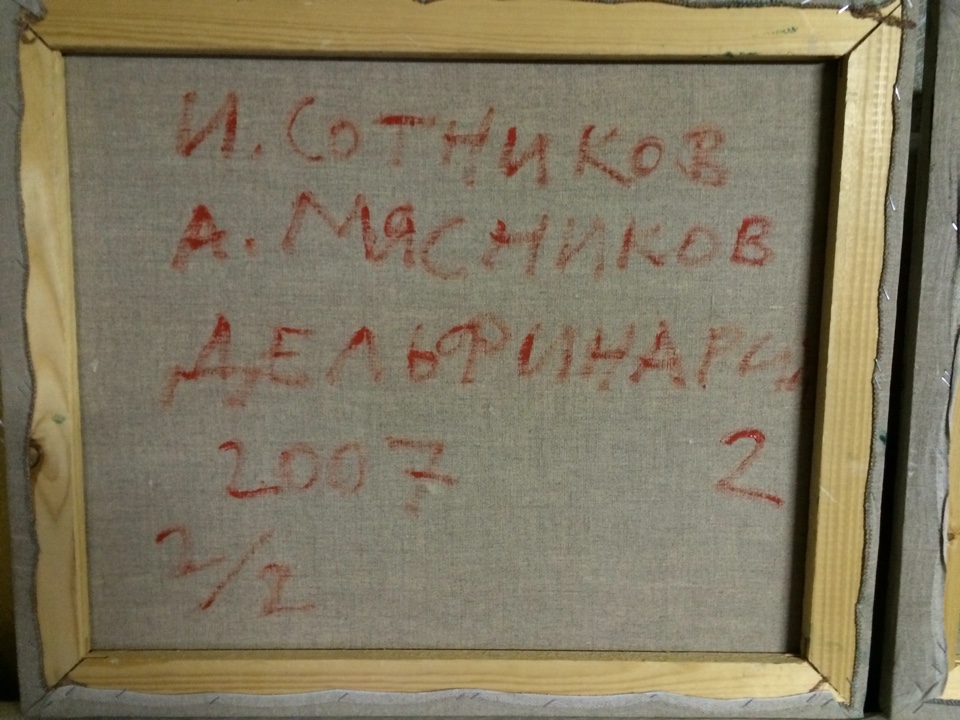 И. СОТНИКОВ
А. МЯСНИКОВ
ДЕЛЬФИНАРИ
2007 2
2/2